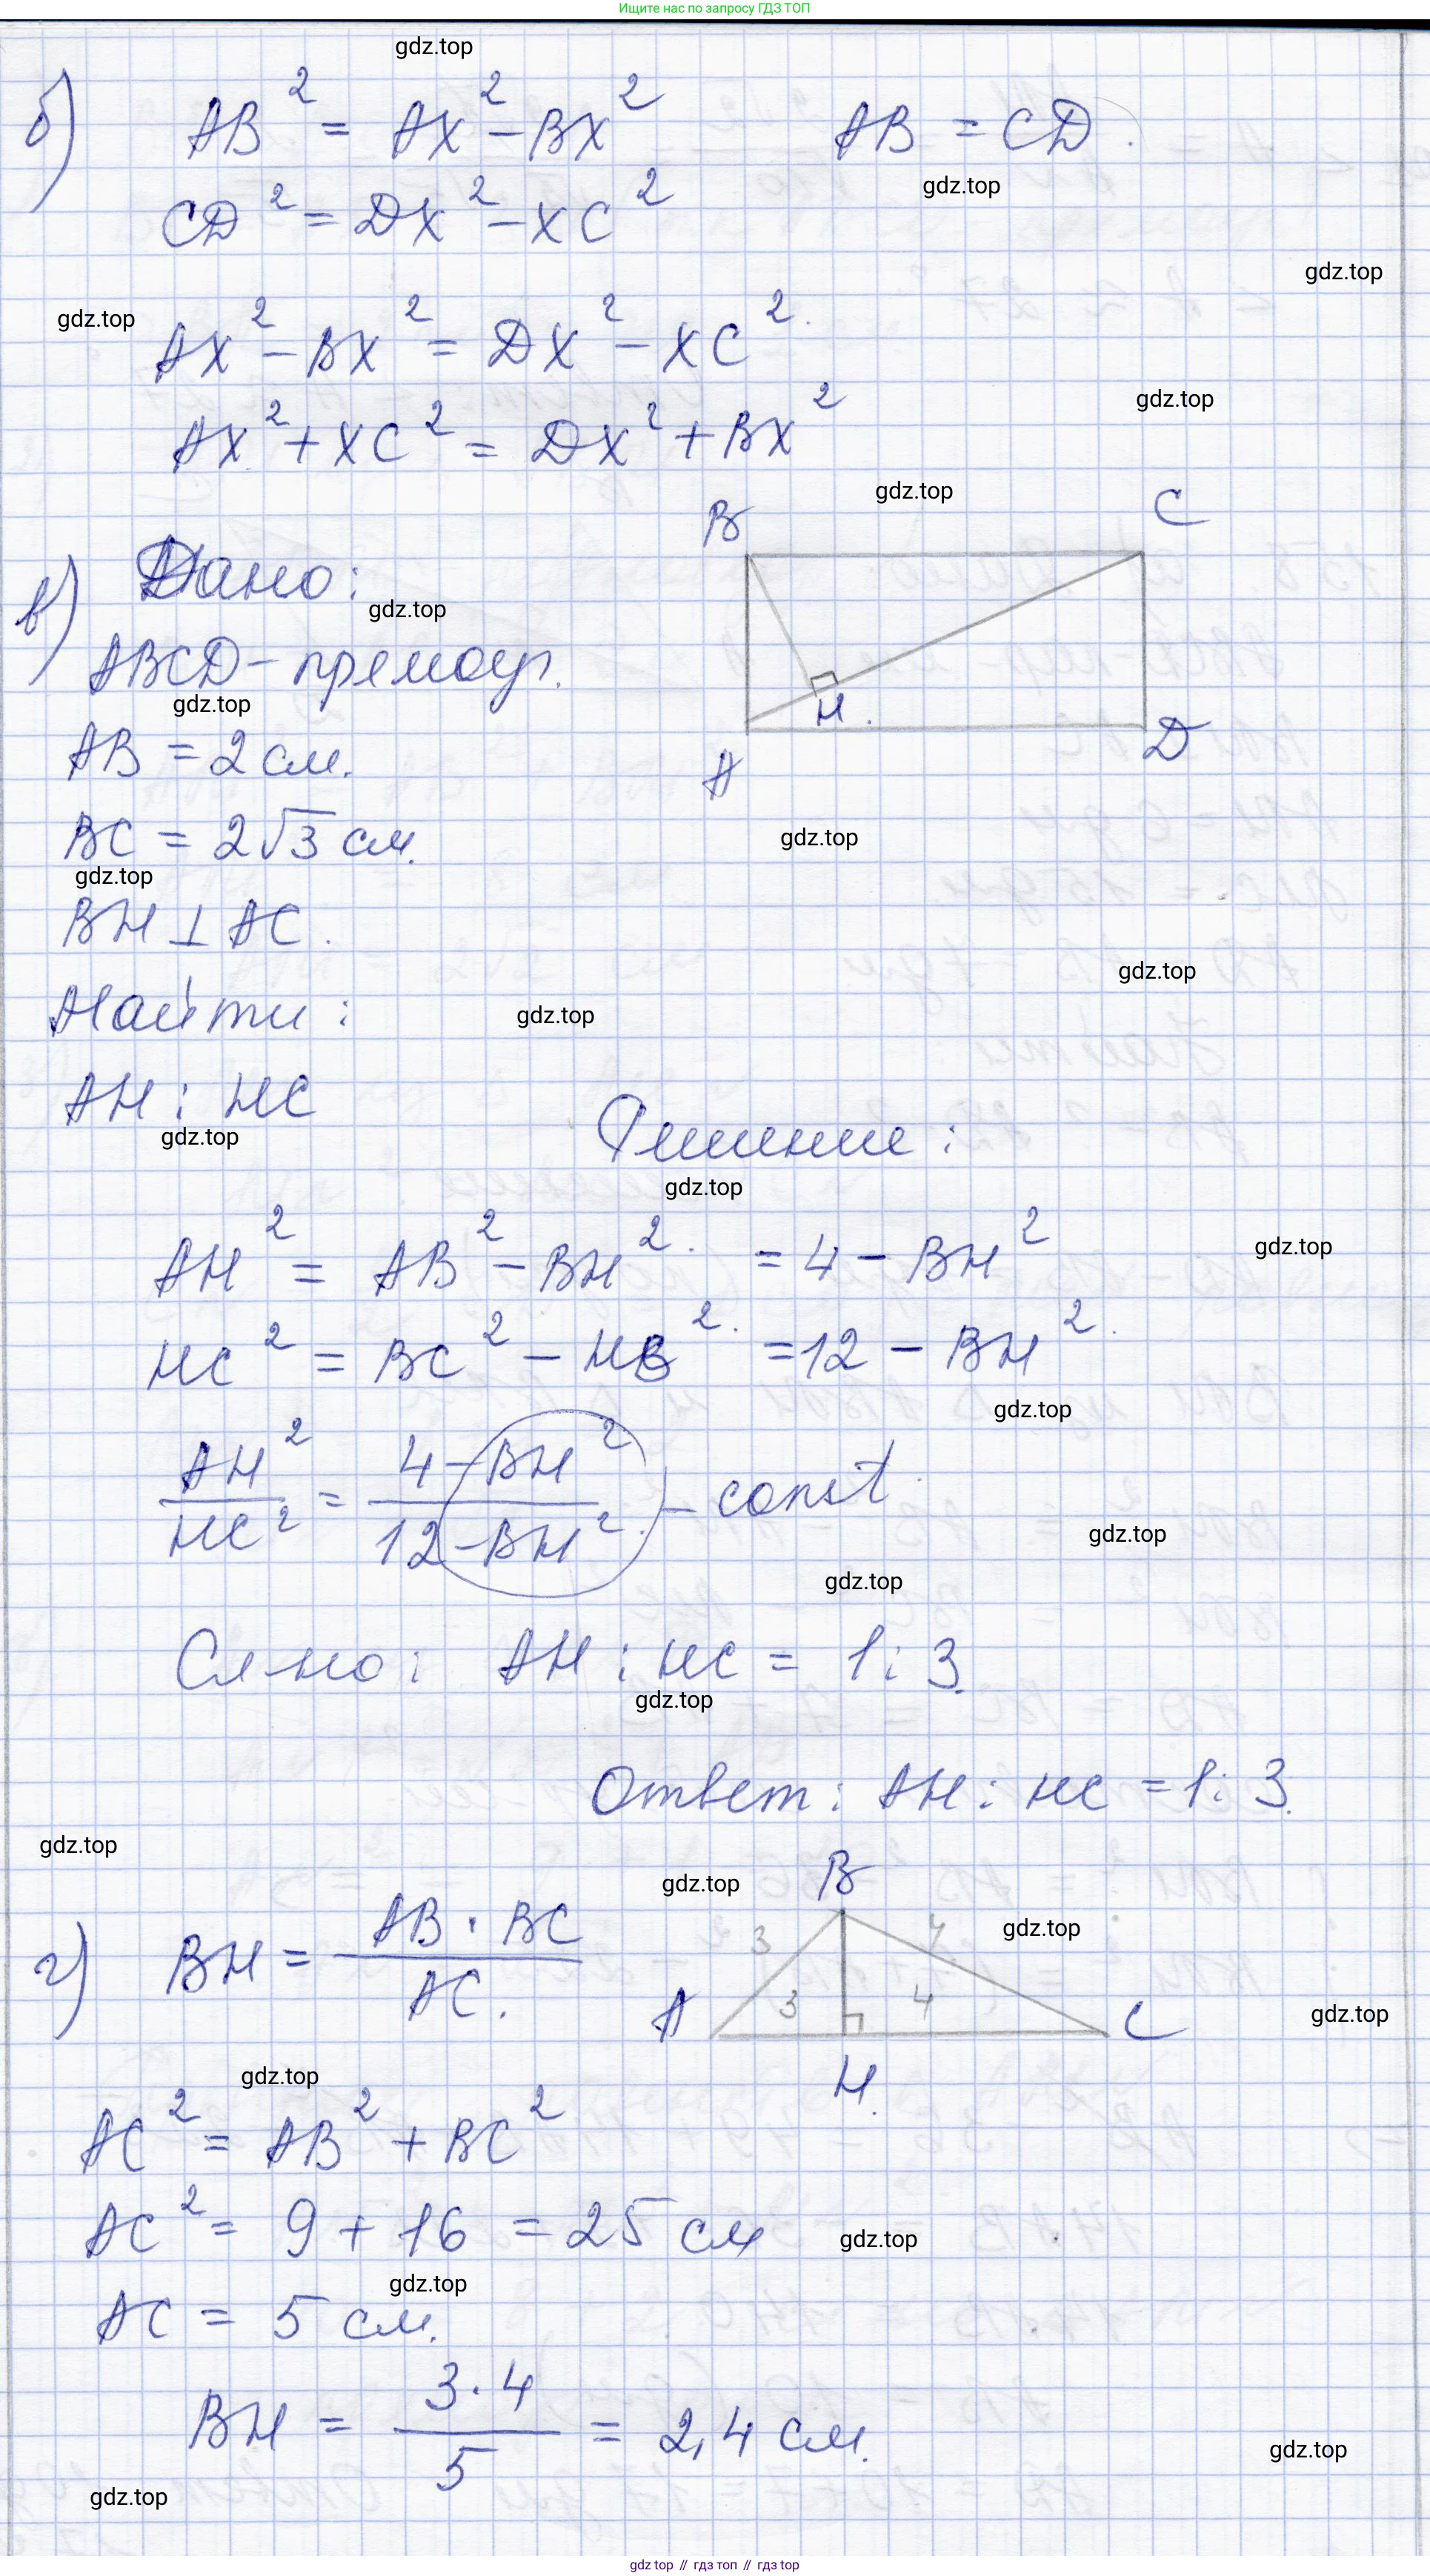 Ищите нас по запросу ГДЗ ТОП
gdz.top
б) AB² = AX² - BX² AB = CD.
gdz.top
CD² = DX² - XC²
gdz.top
gdz.top
AX² - BX² = DX² - XC².
gdz.top
AX² + XC² = DX² + BX²
gdz.top
B C
в) Дано:
gdz.top
ABCD - прямоуг.
gdz.top
H.
A D
AB = 2 см.
BC = 2√3 см.
gdz.top
gdz.top
BH ⊥ AC.
gdz.top
Найти:
gdz.top
AH : HC
gdz.top
Решение:
gdz.top
AH² = AB² - BH². = 4 - BH²
gdz.top
HC² = BC² - HB². = 12 - BH².
gdz.top
AH²/HC² = (4 - BH²)/(12 - BH²) - const
gdz.top
gdz.top
Сл-но: AH : HC = 1 : 3.
gdz.top
Ответ: AH : HC = 1 : 3.
gdz.top
gdz.top
B
gdz.top
3 4
3 4
A C
H.
г) BH = AB · BC / AC.
gdz.top
gdz.top
AC² = AB² + BC²
AC² = 9 + 16 = 25 см
gdz.top
gdz.top
AC = 5 см.
BH = 3 · 4 / 5 = 2,4 см.
gdz.top
gdz.top
gdz top // гдз топ // гдз top